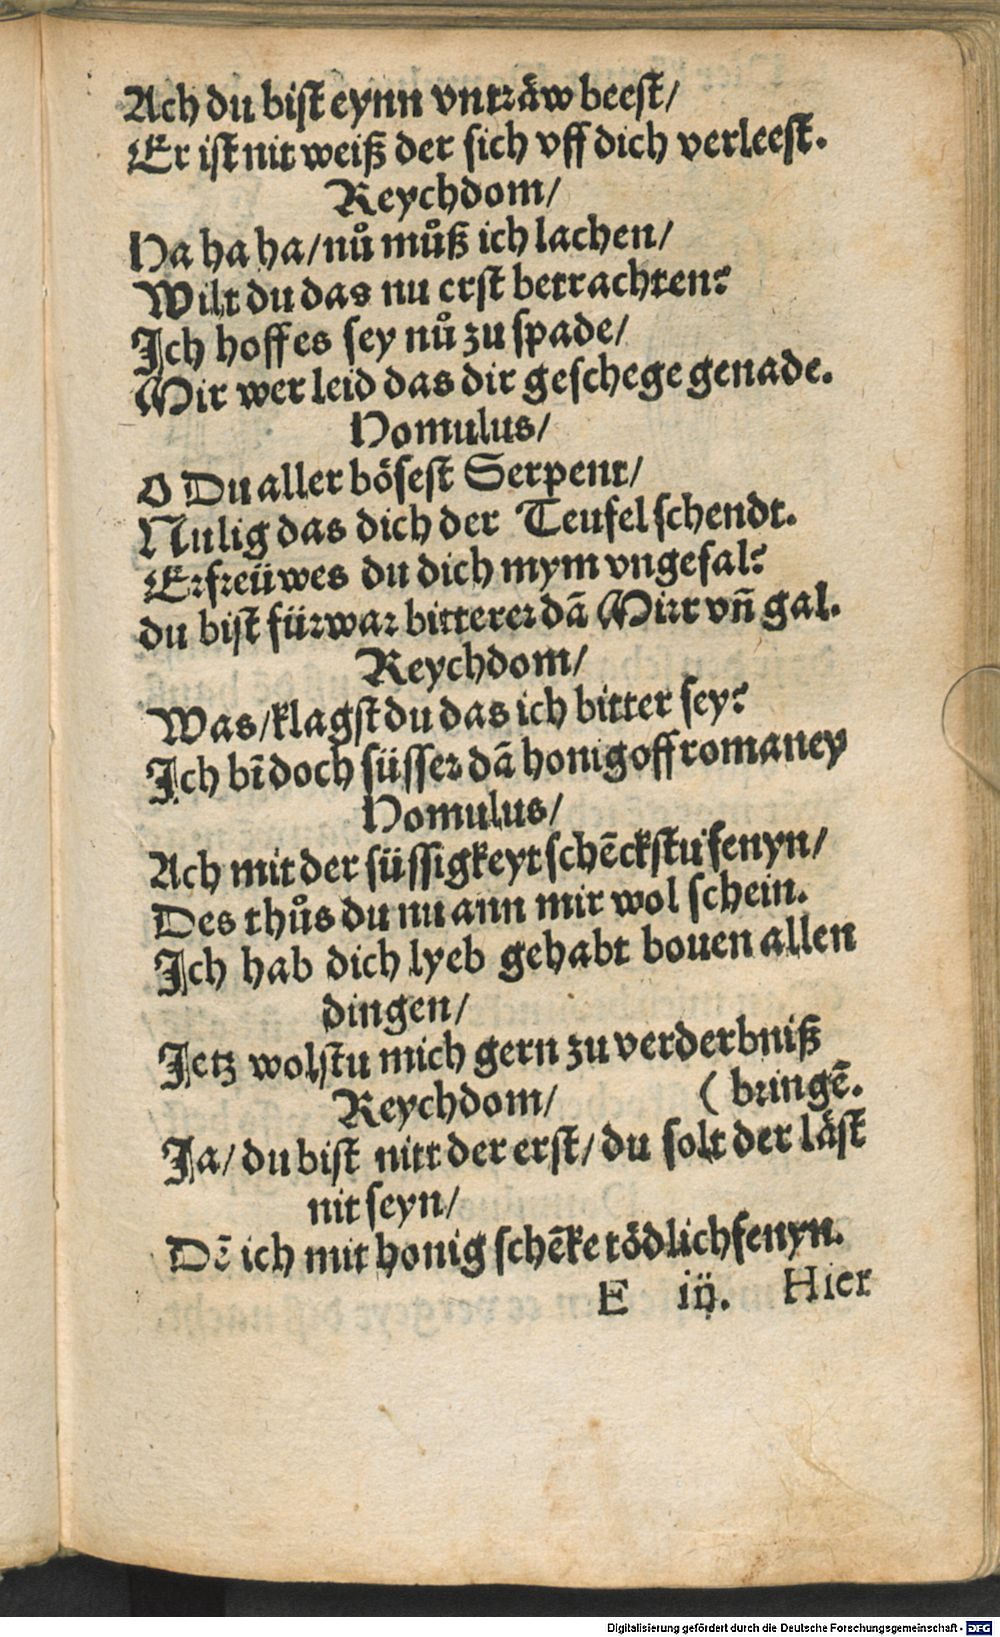 Ach du bist eynn vnträw beest/
Er ist nit weiß der sich vff dich verleest.
Reychdom/
Ha ha ha/nuͦ muͦß ich lachen/
Wilt du das nu erst betrachten?
Ich hoff es sey nuͦ zu spade/
Mir wer leid das dir geschege genade.
Homulus/
O Du aller bösest Serpent/
Nulig das dich der Teufel schendt.
Erfreüwes du dich mym vngefal?
du bist fürwar bitterer dā Mirr vn̄ gal.
Reychdom/
Was/klagst du das ich bitter sey?
Ich bī doch süsser dā honig off romaney
Homulus/
Ach mit der süssigkeyt schēckstu fenyn/
Des thuͦs du nu ann mir wol schein.
Ich hab dich lyeb gehabt bouen allen
dingen/
Jetz wolstu mich gern zu verderbniß
Reychdom/ ( bringē.
Ja/ du bist nitt der erst/ du solt der läst
nit seyn/
Dē ich mit honig schēke tödlich fenyn.
E iij. Hier
Digitalisierung gefördert durch die Deutsche Forschungsgemeinschaft - DFG